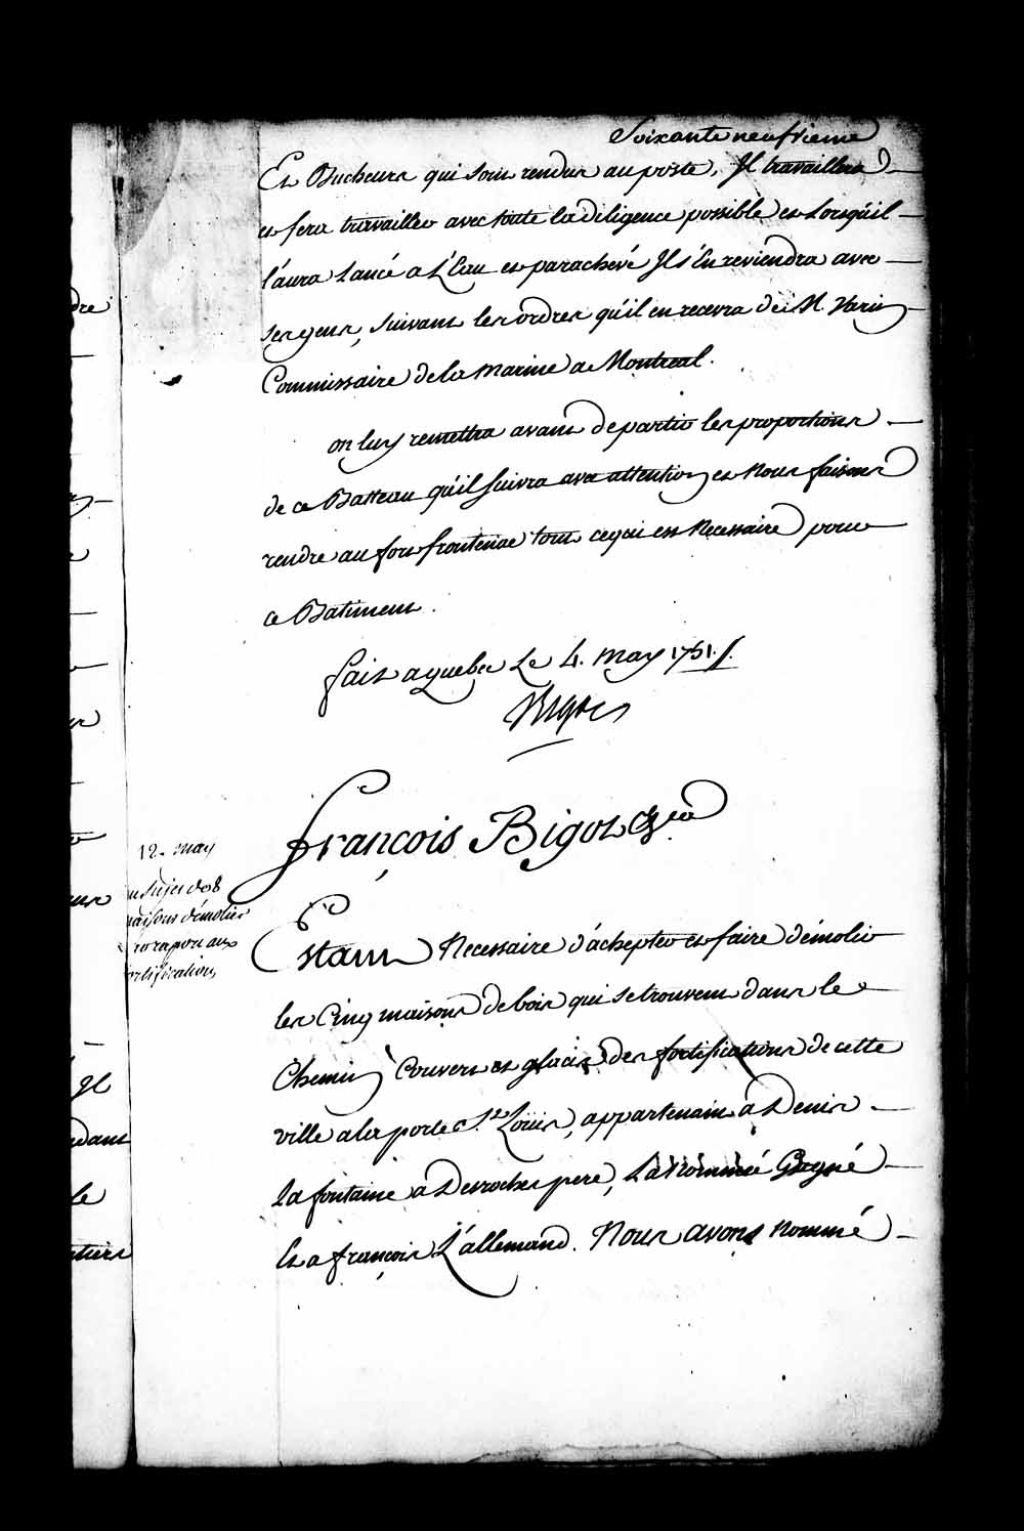 Soixante neufvieme
Et Bucheurs qui sont rendus au poste, Il travaillera
et fera travailler avec toute la diligence possible et Lorsquil
l'aura Lancé a L'Eau et parachevé Il s'En reviendra avec
ses gens, suivant les ordres qu'il en recevra de M. Varin
Commissaire de la Marine a Montreal.
on luy remettra avant de partir les proportions
de ce Batteau qu'il suivra avec attention et Nous faisons
rendre au fort frontenac tout ce qui est Necessaire pour
ce Batiment.
fait a quebec Le 4. may 1751 ./.
Bigot
françois Bigot &ca
12. may
au sujet de 8
maisons démolies
fortifications
Estant Necessaire d'achepter et faire démolir
les Cinq maisons de bois qui se trouvent dans le
Chemin Couvert et glacis des fortifications de cette
ville a la porte St. Loüis, appartenant à Denis
la fontaine a Desroches pere, La Nommée Gagné
Et a françois L'allemand. Nous avons nommé
dre
Il
dant
le
tiers